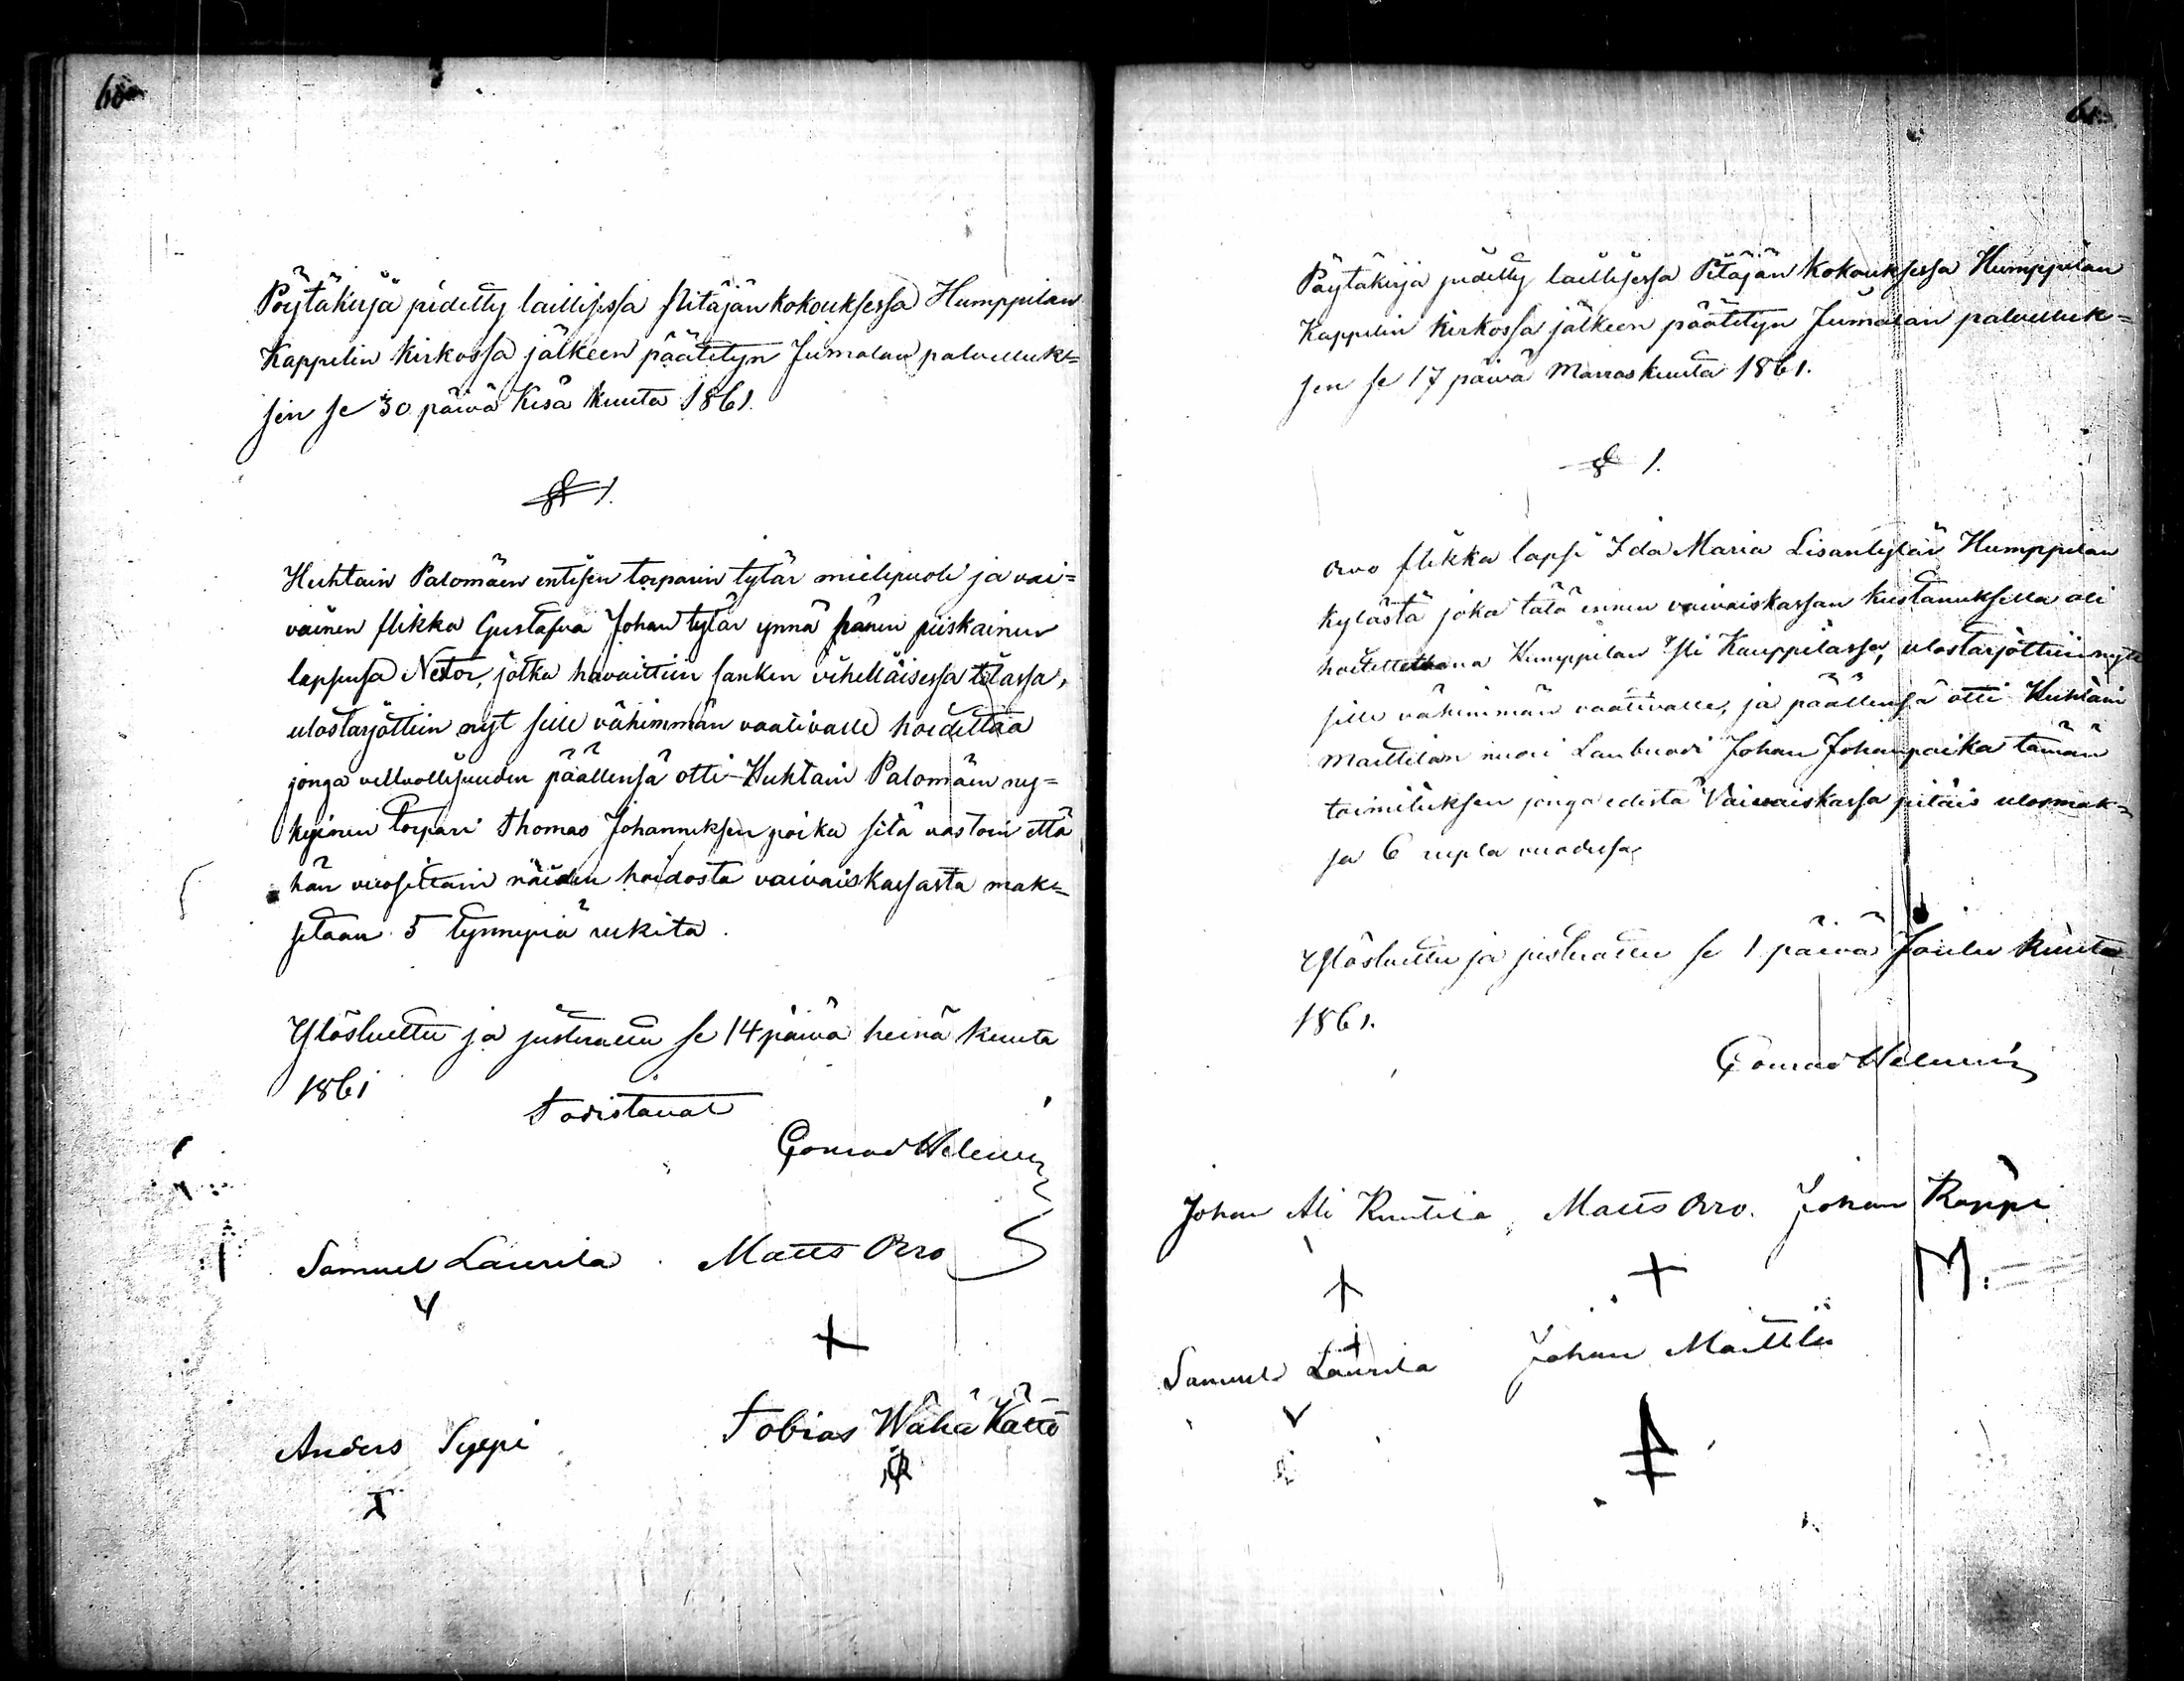 60
Pöytäkirja pidetty laillisessa Pitäjänkokouksessa Humppilan
Kappelin Kirkossa jälkeen päätetyn Jumalan palvelluk=
sen se 30 päivä Kisä kuuta 1861.
§ 1.
Huhtain Palomäen entisen torparin tytär mielipuoli ja vai=
vainen flikka Gustafva Johan tytär ynnä hänen piiskainen
lapsensa Nestor, jotka havaittiin sanken vihelläisessä tilassa,
ulostarjottiin nyt sille vähimmän vaativalle hoidettaa
jonga velvollisuuden päällensä otti Huhtain Palomäen ny=
kyinen torpari Thomas Johanneksen poika sitä vastoin että
hän vuosittain näiden hoidosta vaivaiskassasta mak=
setaan 5 tynnyriä rukita.
Ylösluettu ja justerattu se 14 päivä heinä kuuta
1861
Todistavat
Conrad Helenius
Samuel Laurila Matts Orro
Anders Seppi Tobias Wähä Kättö
61
Pöytäkirja pidetty laillisessa Pitäjän kokouksessa Humppilan
Kappelin kirkossa jälkeen päätetyn Jumalan palvelluk=
sen se 17 päivä Marraskuuta 1861.
§ 1.
Orvo flikka lapsi Ida Maria Lisantytär Humppilan
kylästä joka tätä ennen vaivaiskassan kustanuksella oli
hoitettavana Humppilan Yli Kauppilassa, ulostarjottiin nyt
sille vähimmän vaativalle, ja päällensä otti Huhtain
Maittilan nuori Lanbuodi Johan Johanpoika tämän
toimituksen jonga edestä Vaivaiskassa pitäis ulosmak=
sa 6 rupla vuodessa,
Ylösluettu ja justerattu se 1 päivä Joulu kuuta
1861.
Conrad Helenius
Johan Ali Runtila Matts Orro. Johan Roppi
M.
Samuel Laurila Johan Maittila